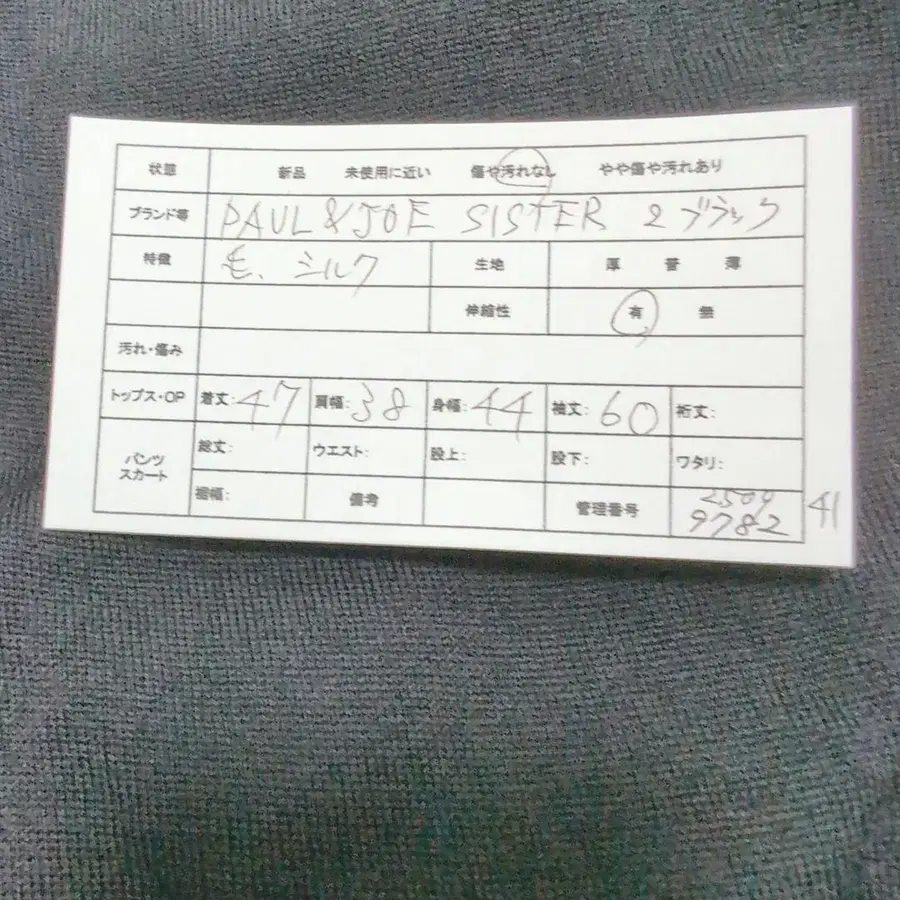 状態 新品 未使用に近い 傷や汚れなし やや傷や汚れあり
ブランド等 PAUL & JOE SISTER 2 ブラック
特徴 毛、シルク 生地 厚 普 薄
伸縮性 有 無
汚れ・傷み
トップス・OP 着丈: 47 肩幅: 38 身幅: 44 袖丈: 60 裄丈:
パンツ スカート 総丈: ウエスト: 股上: 股下: ワタリ:
裾幅: 備考 管理番号 2509
9782 41